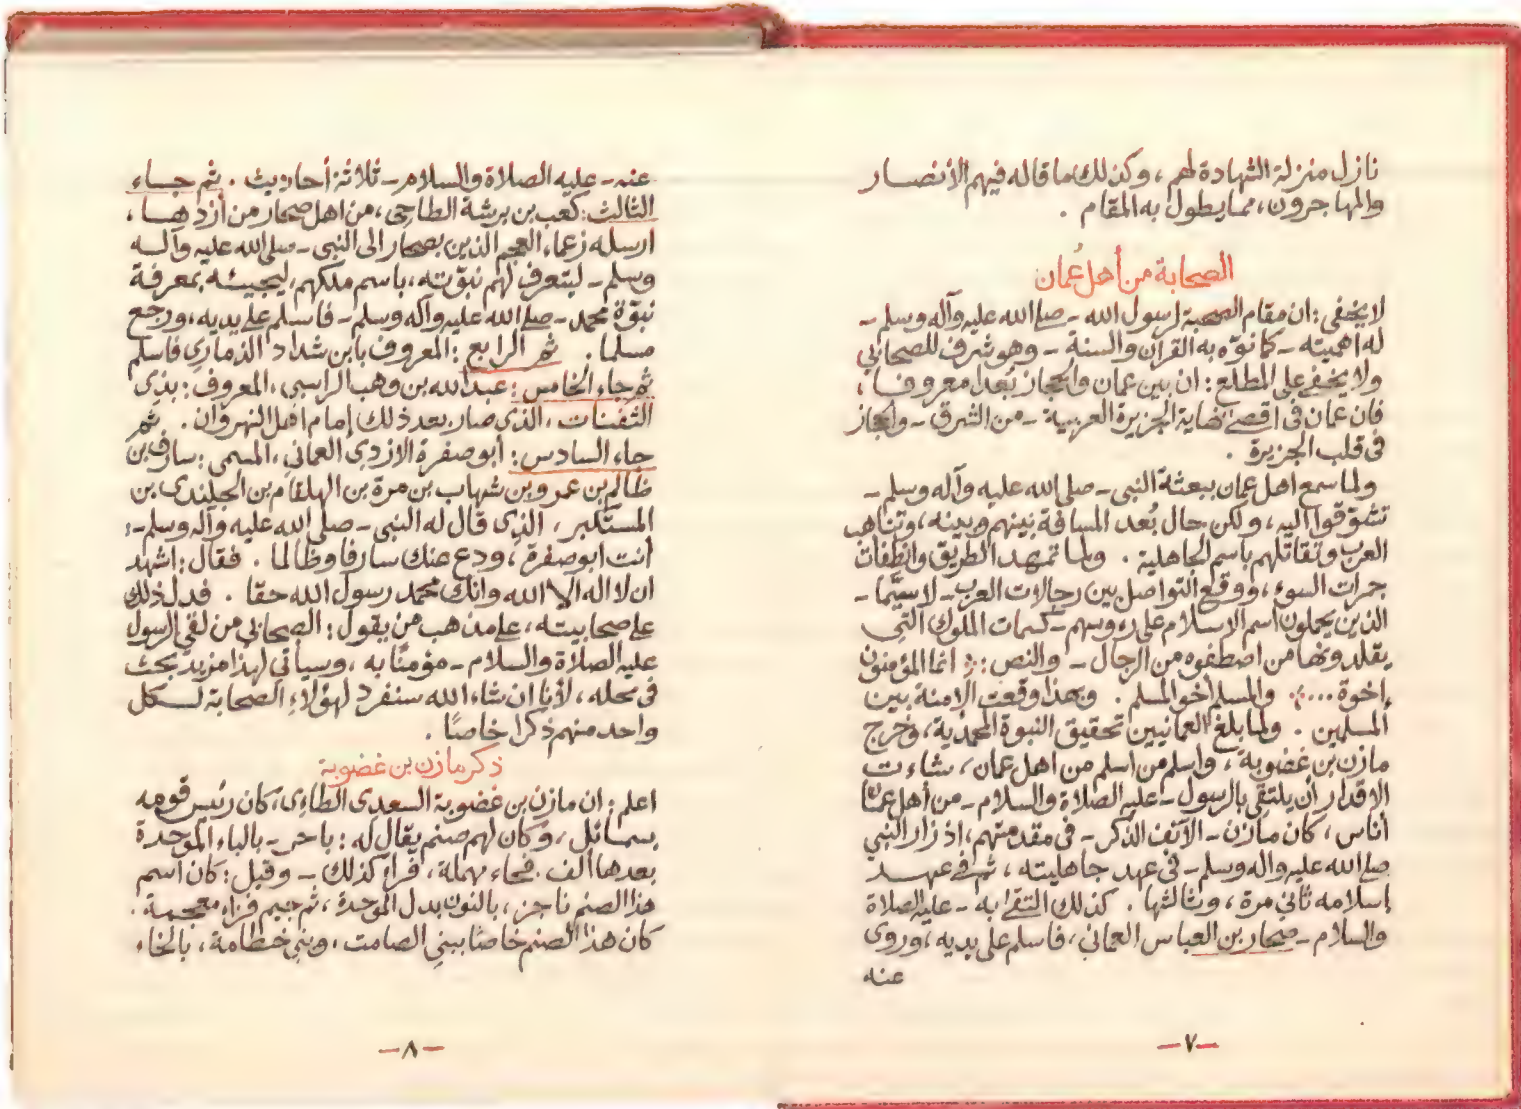 نازل منزلة الشهادة لهم ، وكذلك ما قاله فيهم الأنصار
والمهاجرون، مما يطول به المقام .
الصحابة من أهل عُمان
لا يخفى : ان مقام الصحبة لرسول الله - صلى الله عليه وآله وسلم -
له اهميته - كما نوّه به القرآن والسنة - وهو شرف للصحابي
ولا يخفى على المطلع : ان بين عمان والحجاز بُعدا معروفا ،
فان عمان في اقصى نهاية الجزيرة العربية - من الشرق - والحجاز
في قلب الجزيرة .
ولما سمع اهل عمان ببعثة النبي - صلى الله عليه وآله وسلم -
تشوّقوا اليه ، ولكن حال بُعد المسافة بينهم وبينه ، وتناهب
العرب وتقاتلهم باسم الجاهلية . ولما تمهد الطريق وانطفأت
جمرات السوء ، ووقع التواصل بين رجالات العرب - لا سيَّما -
الذين يحملون اسم الإسلام على رءوسهم - كسمات الملوك التي
يقلدونها من اصطفوه من الرجال - والنص : ﴿ انما المؤمنون
إخوة ... ﴾ والمسلم أخو المسلم . وبهذا وقعت الامنة بين
المسلمين . ولما بلغ العمانيين تحقيق النبوة المحمدية ، وخرج
مازن بن غضوبة ، واسلم من اسلم من اهل عمان ، شاءت
الاقدار أن يلتقي بالرسول - عليه الصلاة والسلام - من أهل عمان
أناس ، كان مازن - الآنف الذكر - في مقدمتهم ، اذ زار النبي
صلى الله عليه وآله وسلم - في عهد جاهليته ، ثم في عهد
إسلامه ثاني مرة ، وثالثها . كذلك التقى به - عليه الصلاة
والسلام - صحار بن العباس العماني ، فاسلم على يديه ، وروى
عنه
- ٧ -
عنه - عليه الصلاة والسلام - ثلاثة أحاديث . ثم جاء
الثالث : كعب بن برشة الطاحي ، من اهل صحار من أزدها ،
ارسله زعماء العجم الذين بصحار الى النبي - صلى الله عليه وآله
وسلم - ليتعرف لهم نبوّته ، باسم ملكهم ، ليجيئه بمعرفة
نبوّة محمد - صلى الله عليه وآله وسلم - فاسلم على يديه ، ورجع
مسلما . ثم الرابع : المعروف بابن شداد الذماري فاسلم
ثم جاء الخامس : عبد الله بن وهب الراسبي ، المعروف : بذى
الثفنات ، الذي صار بعد ذلك إمام اهل النهروان . ثم
جاء السادس : أبو صفرة الازدي العماني ، المسمى : سارف بن
ظالم بن عمرو بن شهاب بن مرة بن الهلقام بن الجلندى بن
المستكبر ، الذي قال له النبي - صلى الله عليه وآله وسلم - :
أنت ابو صفرة ، ودع عنك سارفا وظالما . فقال : اشهد
ان لا اله الا الله وانك محمد رسول الله حقا . فدل ذلك
على صحابيته ، على مذهب من يقول : الصحابي من لقي الرسول
عليه الصلاة والسلام - مؤمنًا به ، وسيأتي لهذا مزيد بحث
في محله ، لأنا ان شاء الله سنفرد لهؤلاء الصحابة لكل
واحد منهم ذكرا خاصًا .
ذكر مازن بن غضوبة
اعلم : ان مازن بن غضوبة السعدي الطاءي ، كان رئيس قومه
بسمائل ، وكان لهم صنم يقال له : باحر - بالباء الموحدة
بعدها ألف . فحاء مهملة ، فراء كذلك - وقيل : كان اسم
هذا الصنم ناجز ، بالنون بدل الموحدة ، ثم جيم فزاء معجمة .
كان هذا الصنم خاصًا ببني الصامت ، وبني خطامة ، بالخاء
- ٨ -